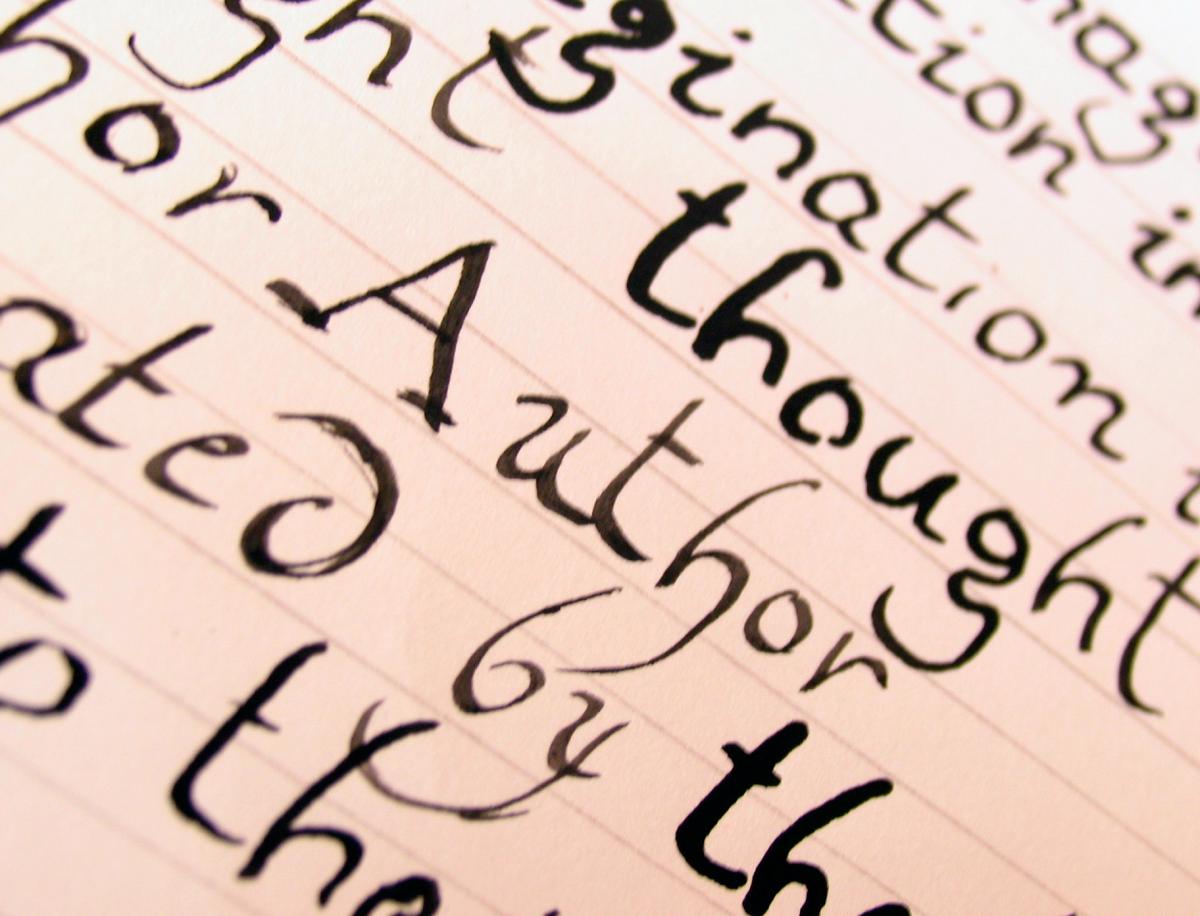 mag
tion in
gination t
ght thought
hor Author
ated by the
to the